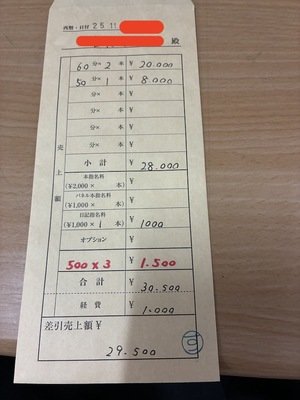 西暦・日付 25.11
殿
60分× 2 本 ¥ 20.000
50分× 1 本 ¥ 8.000
分× 本 ¥
分× 本 ¥
分× 本 ¥
分× 本 ¥
小計 ¥ 28.000
売上額
本指名料
(¥2,000× 本) ¥
パネル本指名料
(¥1,000× 本) ¥
日記指名料
(¥1,000× 1 本) ¥ 1000
オプション ¥
500 x 3 ¥ 1.500
合計 ¥ 30.500
経費 ¥ 1.000
差引売上額 ¥
29.500